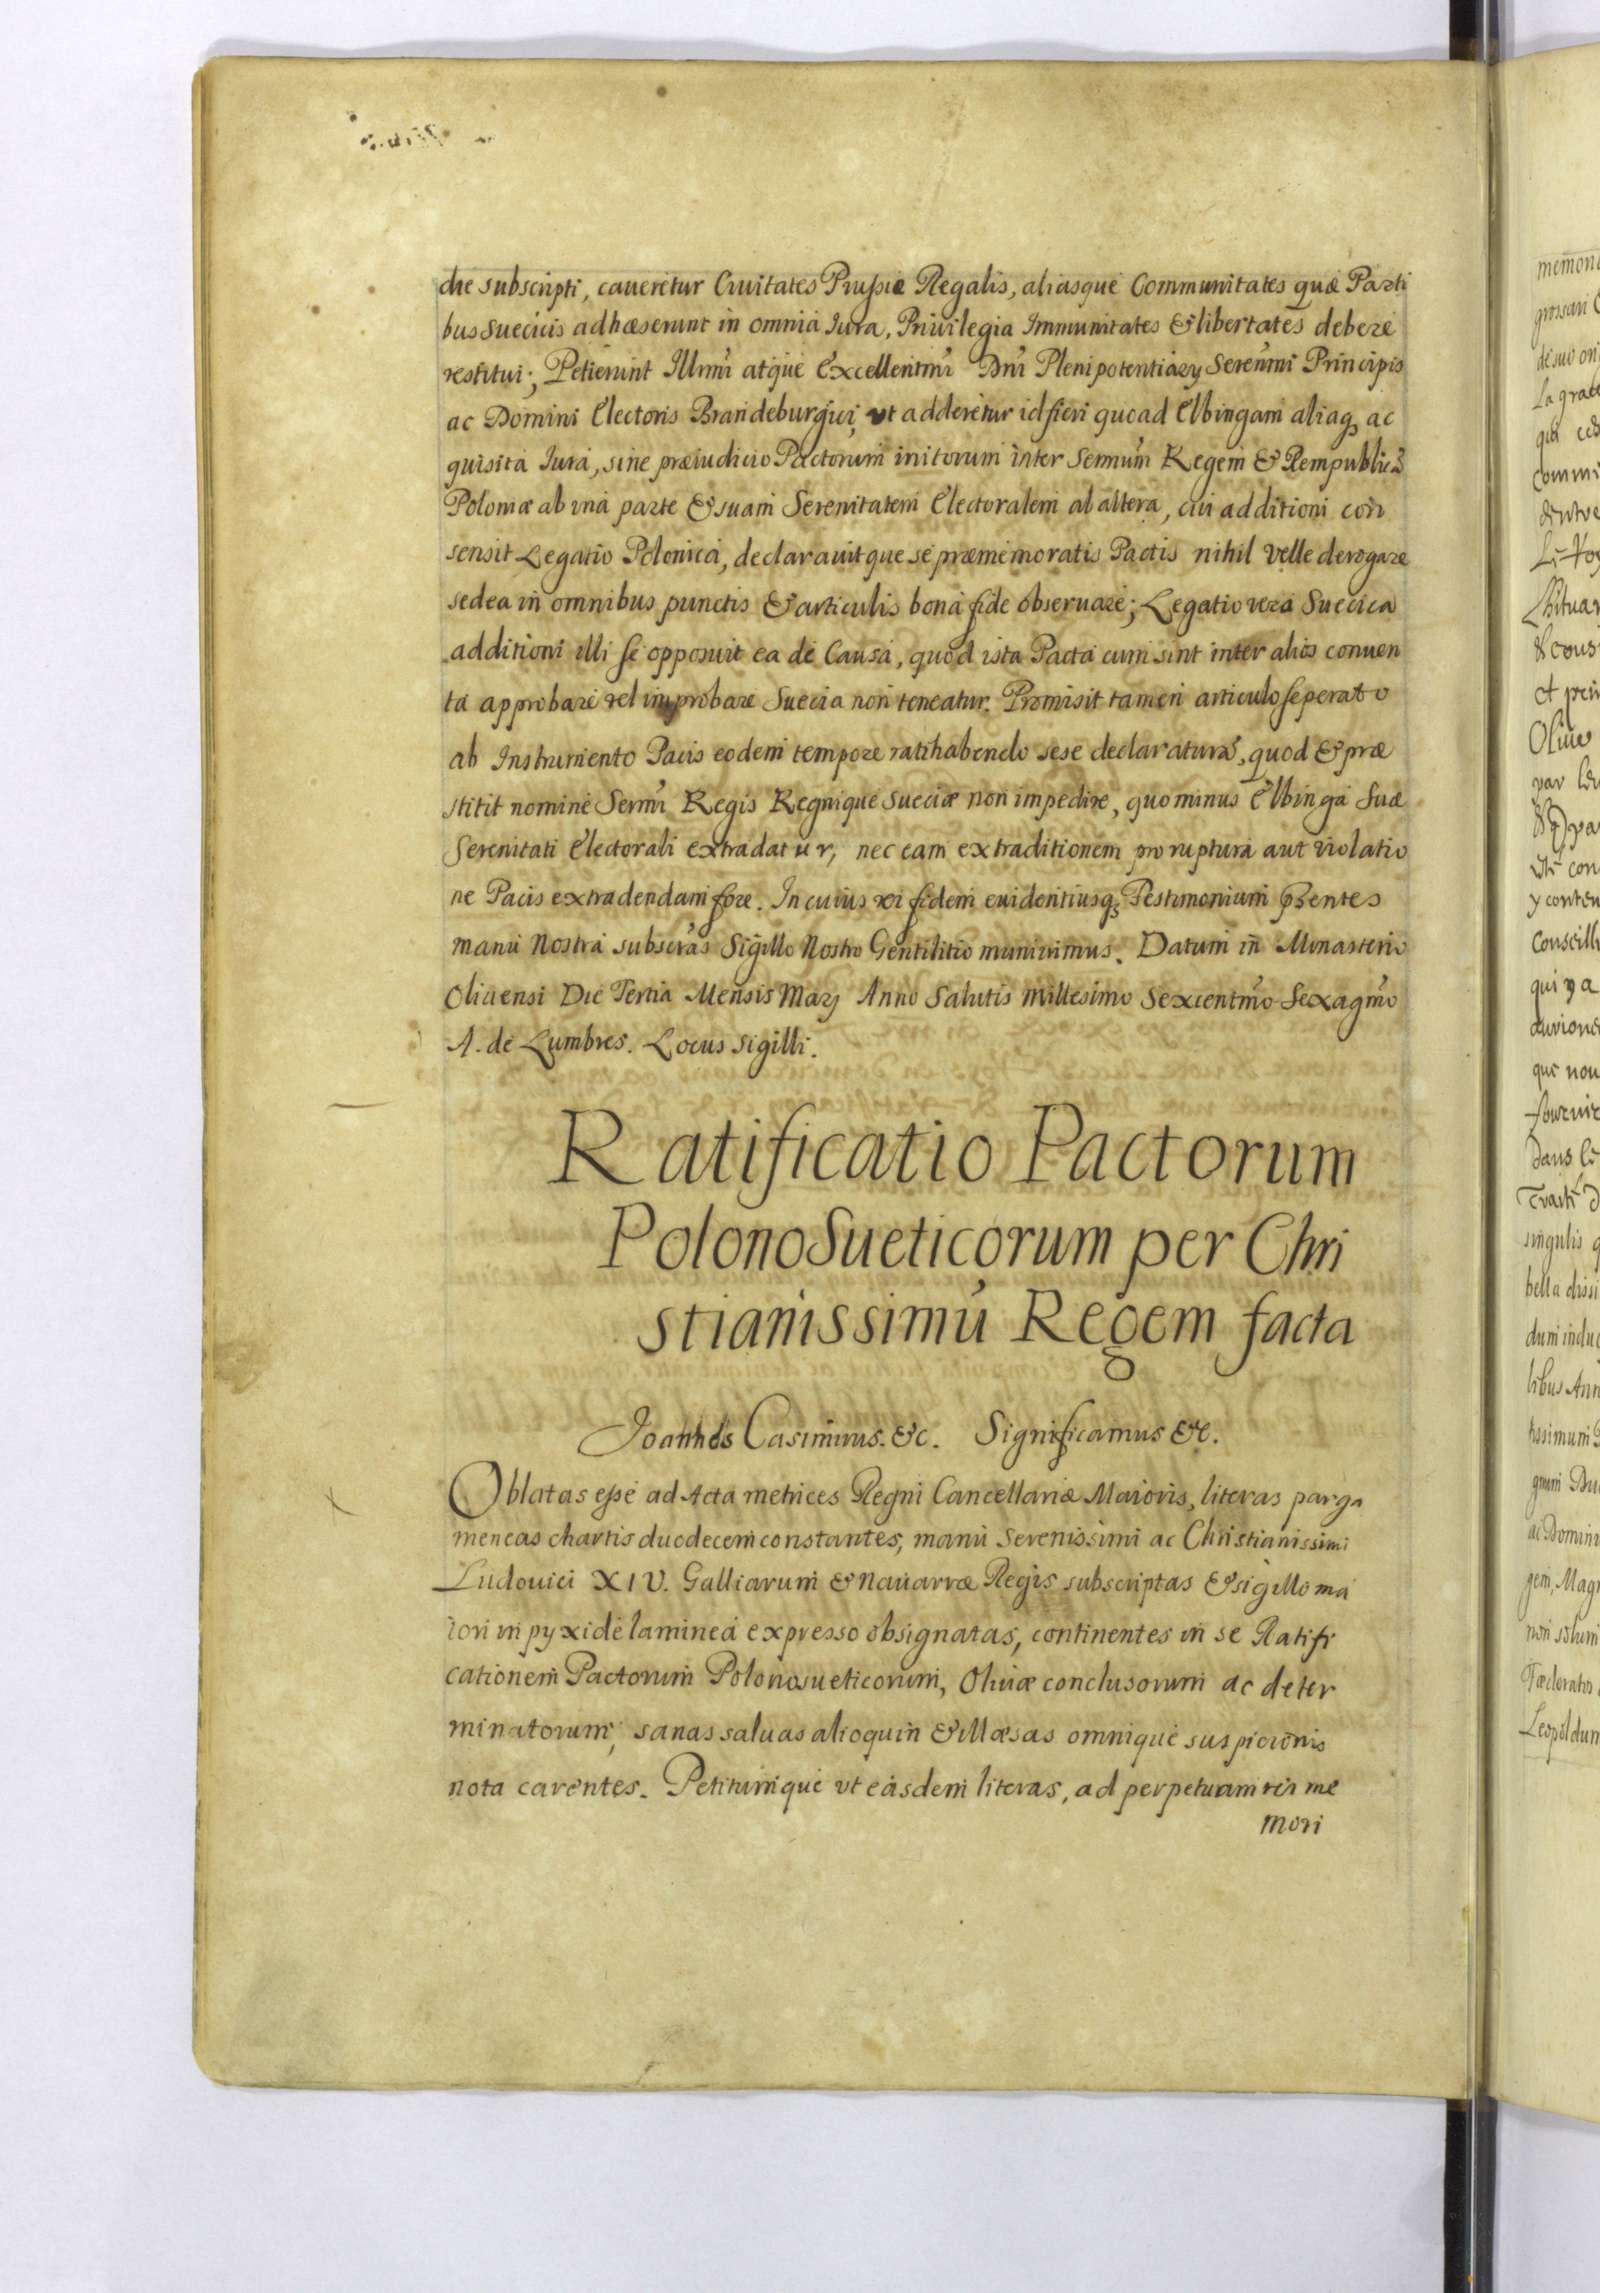 die subscripti, caueretur Ciuitates Prussiæ Regalis, aliasque Communitates quæ Parti
bus Suecicis adhæserunt in omnia Iura, Priuilegia Immunitates & libertates debere
restitui; Petierunt Illmi atque Excellentmi Dni Plenipotentiarij Serenmi Principis
ac Domini Electoris Brandeburgici, vt adderetur id fieri quoad Elbingam aliaq, ac
quisita Iura, sine præiudicio Pactorum initorum inter Sermum Regem & Rempublicã
Poloniæ ab vna parte & suam Serenitatem Electoralem ab altera, cui additioni con
sensit Legatio Polonica, declarauitque se præmemoratis Pactis nihil velle derogare
sed ea in omnibus punctis & articulis bona fide obseruare; Legatio vero Suecica
additioni illi se opposuit ea de Causa, quod ista Pacta cum sint inter alios conuen
ta approbare vel improbare Suecia non teneatur. Promisit tamen articulo seperato
ab Instrumento Pacis eodem tempore ratihabendo sese declaraturã, quod & præ
stitit nomine Sermi Regis Regnique Sueciæ non impedire, quominus Elbinga Suæ
Serenitati Electorali extradatur, nec eam extraditionem pro ruptura aut violatio
ne Pacis extradendam fore. In cuius rei fidem euidentiusq, Testimonium pntes
manu Nostra subscras Sigillo Nostro Gentilitio muniuimus. Datum in Monasterio
Oliuensi Die Tertia Mensis Maij Anno Salutis Millesimo Sexcentmo Sexagmo
A. de Lumbres. Locus sigilli.
Ratificatio Pactorum
PolonoSueticorum per Chri
stianissimũ Regem facta
Joannes Casimirus. &c. Significamus &c.
Oblatas esse ad Acta metrices Regni Cancellariæ Maioris, literas parga
meneas chartis duodecem constantes, manu Serenissimi ac Christianissimi
Ludouici XIV. Galliarum & Nauarræ Regis subscriptas & sigillo ma
iori in pyxide laminea expresso obsignatas, continentes in se Ratifi
cationem Pactorum Polonosueticorum, Oliuæ conclusorum ac deter
minatorum, sanas saluas alioquin & illæsas omnique suspicionis
nota carentes. Petitumque vt easdem literas, ad perpetuam rei me
mori